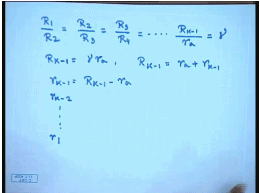 R1/R2 = R2/R3 = R3/R4 = .... RK-1/ra = γ
RK-1 = γ ra , RK-1 = ra + rK-1
rK-1 = RK-1 - ra
rK-2
⋮
r1